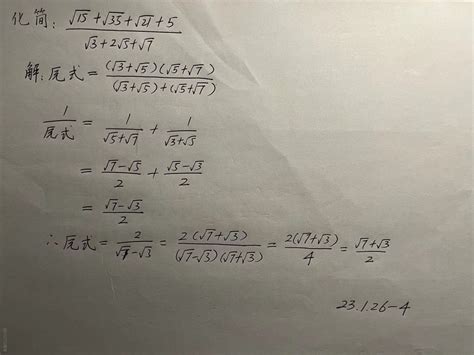 化简: (√15+√35+√21+5)/(√3+2√5+√7)
解: 原式 = (√3+√5)(√5+√7)/((√3+√5)+(√5+√7))
1/原式 = 1/(√5+√7) + 1/(√3+√5)
= (√7-√5)/2 + (√5-√3)/2
= (√7-√3)/2
∴ 原式 = 2/(√7-√3) = 2(√7+√3)/((√7-√3)(√7+√3)) = 2(√7+√3)/4 = (√7+√3)/2
23.1.26-4